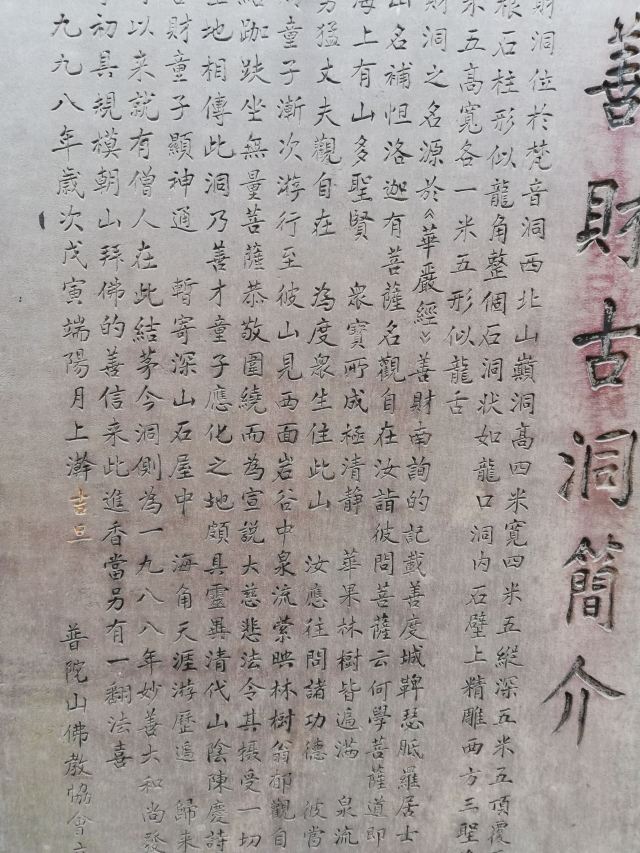 善財古洞簡介
財洞位於梵音洞西北山巔洞高四米寬四米五縱深五米五頂覆
根石柱形似龍角整個石洞狀如龍口洞内石壁上精雕西方三聖
米五高寬各一米五形似龍舌
財洞之名源於《華嚴經》善財南詢的記載善度城鞞瑟胝羅居士
山名補怛洛迦有菩薩名觀自在汝詣彼問菩薩云何學菩薩道即
海上有山多聖賢 衆寶所成極清静 華果林樹皆遍滿 泉流
勇猛丈夫觀自在 為度衆生住此山 汝應往問諸功德 彼當
童子漸次游行至彼山見西面岩谷中泉流縈映林樹蓊郁觀自
結跏趺坐無量菩薩恭敬圍繞而為宣説大慈悲法令其摄受一切
地相傳此洞乃善才童子應化之地頗具靈異清代山陰陳慶詩
善財童子顯神通 暫寄深山石屋中 海角天涯游歷遍 歸来
以来就有僧人在此結茅今洞側為一九八八年妙善大和尚發
初具規模朝山拜佛的善信来此進香當另有一翻法喜
九九八年歲次戊寅端陽月上澣吉旦
普陀山佛教協會